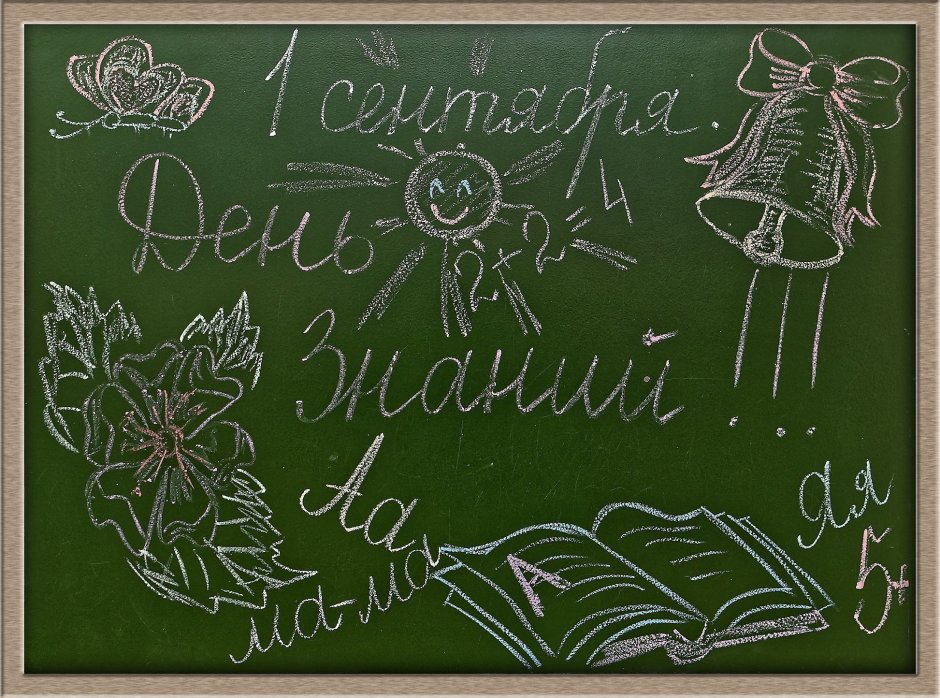 1 сентября.
День
2+2=4
Знаний
Аа
ма-ма
А
Яя
5+